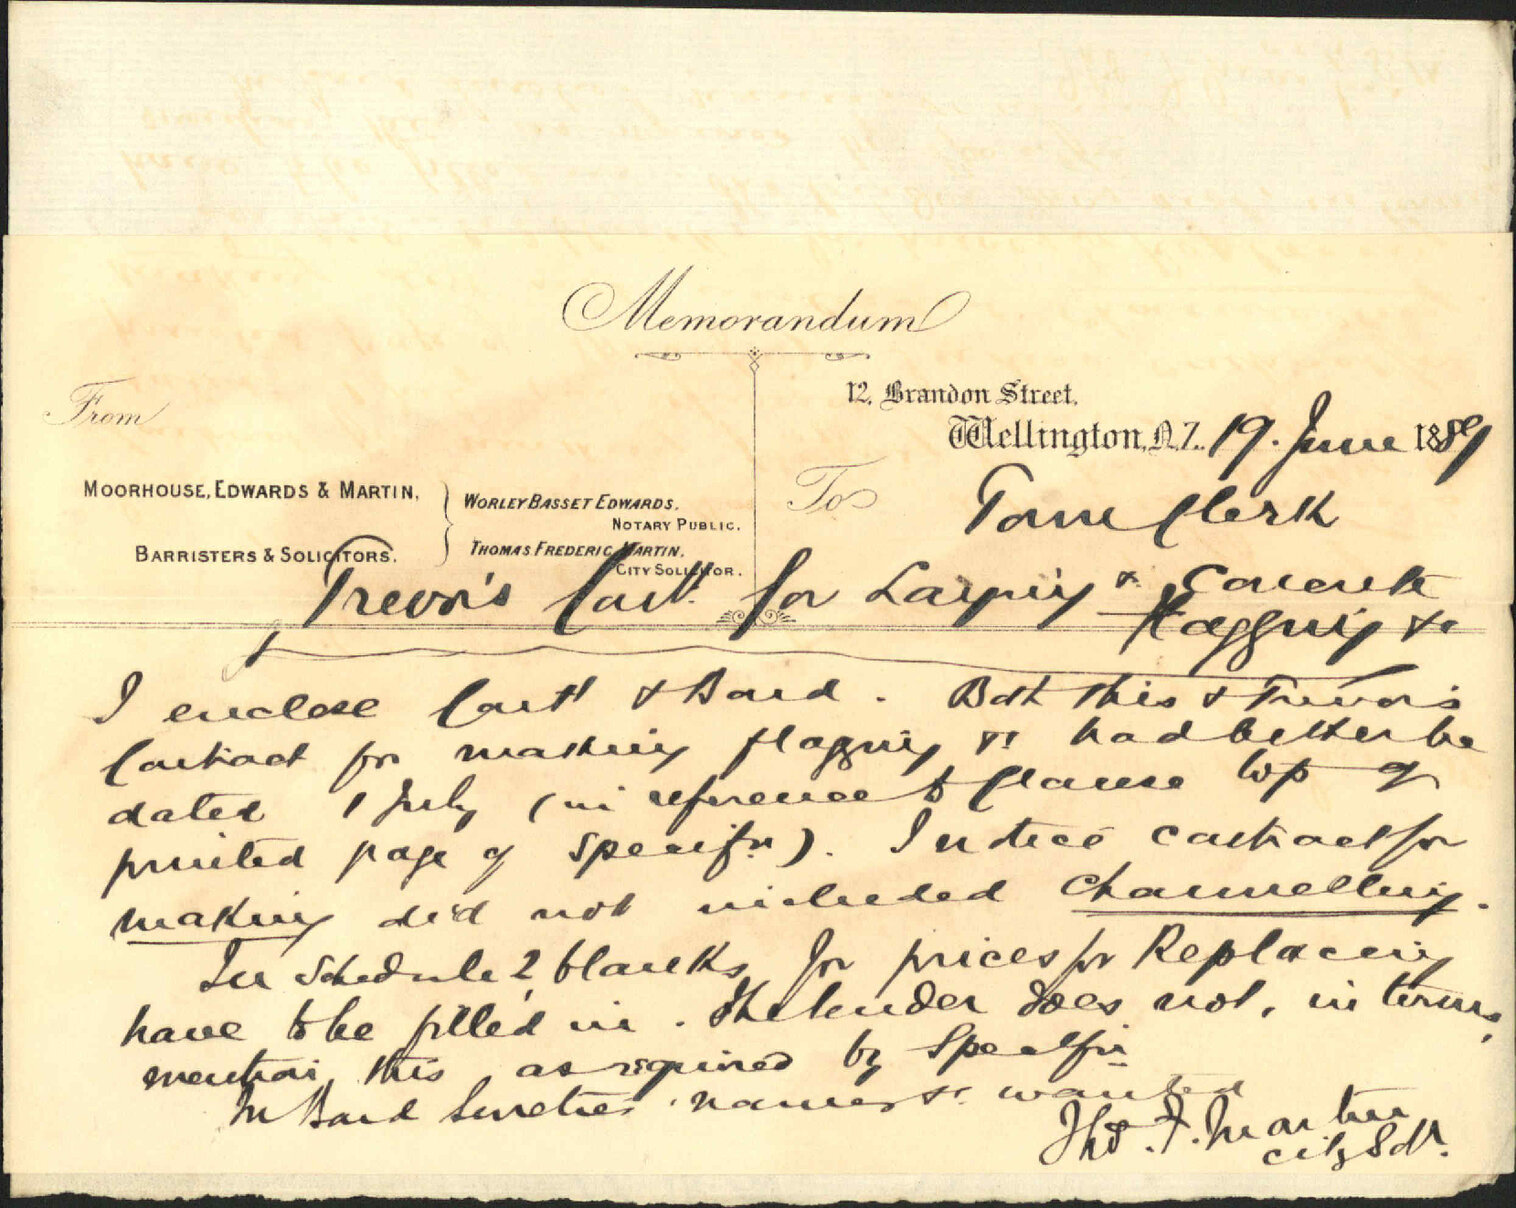 Memorandum
From
12, Brandon Street,
Wellington, N.Z. 19. June 1889
MOORHOUSE, EDWARDS & MARTIN,
BARRISTERS & SOLICITORS.
WORLEY BASSET EDWARDS,
NOTARY PUBLIC.
THOMAS FREDERIC MARTIN,
CITY SOLICITOR.
To
Town Clerk
Trevor's Cont. for Laying & Concrete
Flagging &c
I enclose Cont & Bond. Both this & Trevor's
Contract for making flagging &c had better be
dated 1 July (in reference to clause top of
printed page of Specifn). I notice contract for
making did not included Channelling.
In Schedule 2 blanks for prices for Replacing
have to be filled in. The tender does not, in terms,
mention this as required by Specifn
In Bond Sureties names &c. wanted
Tho. F. Martin
City Solr.